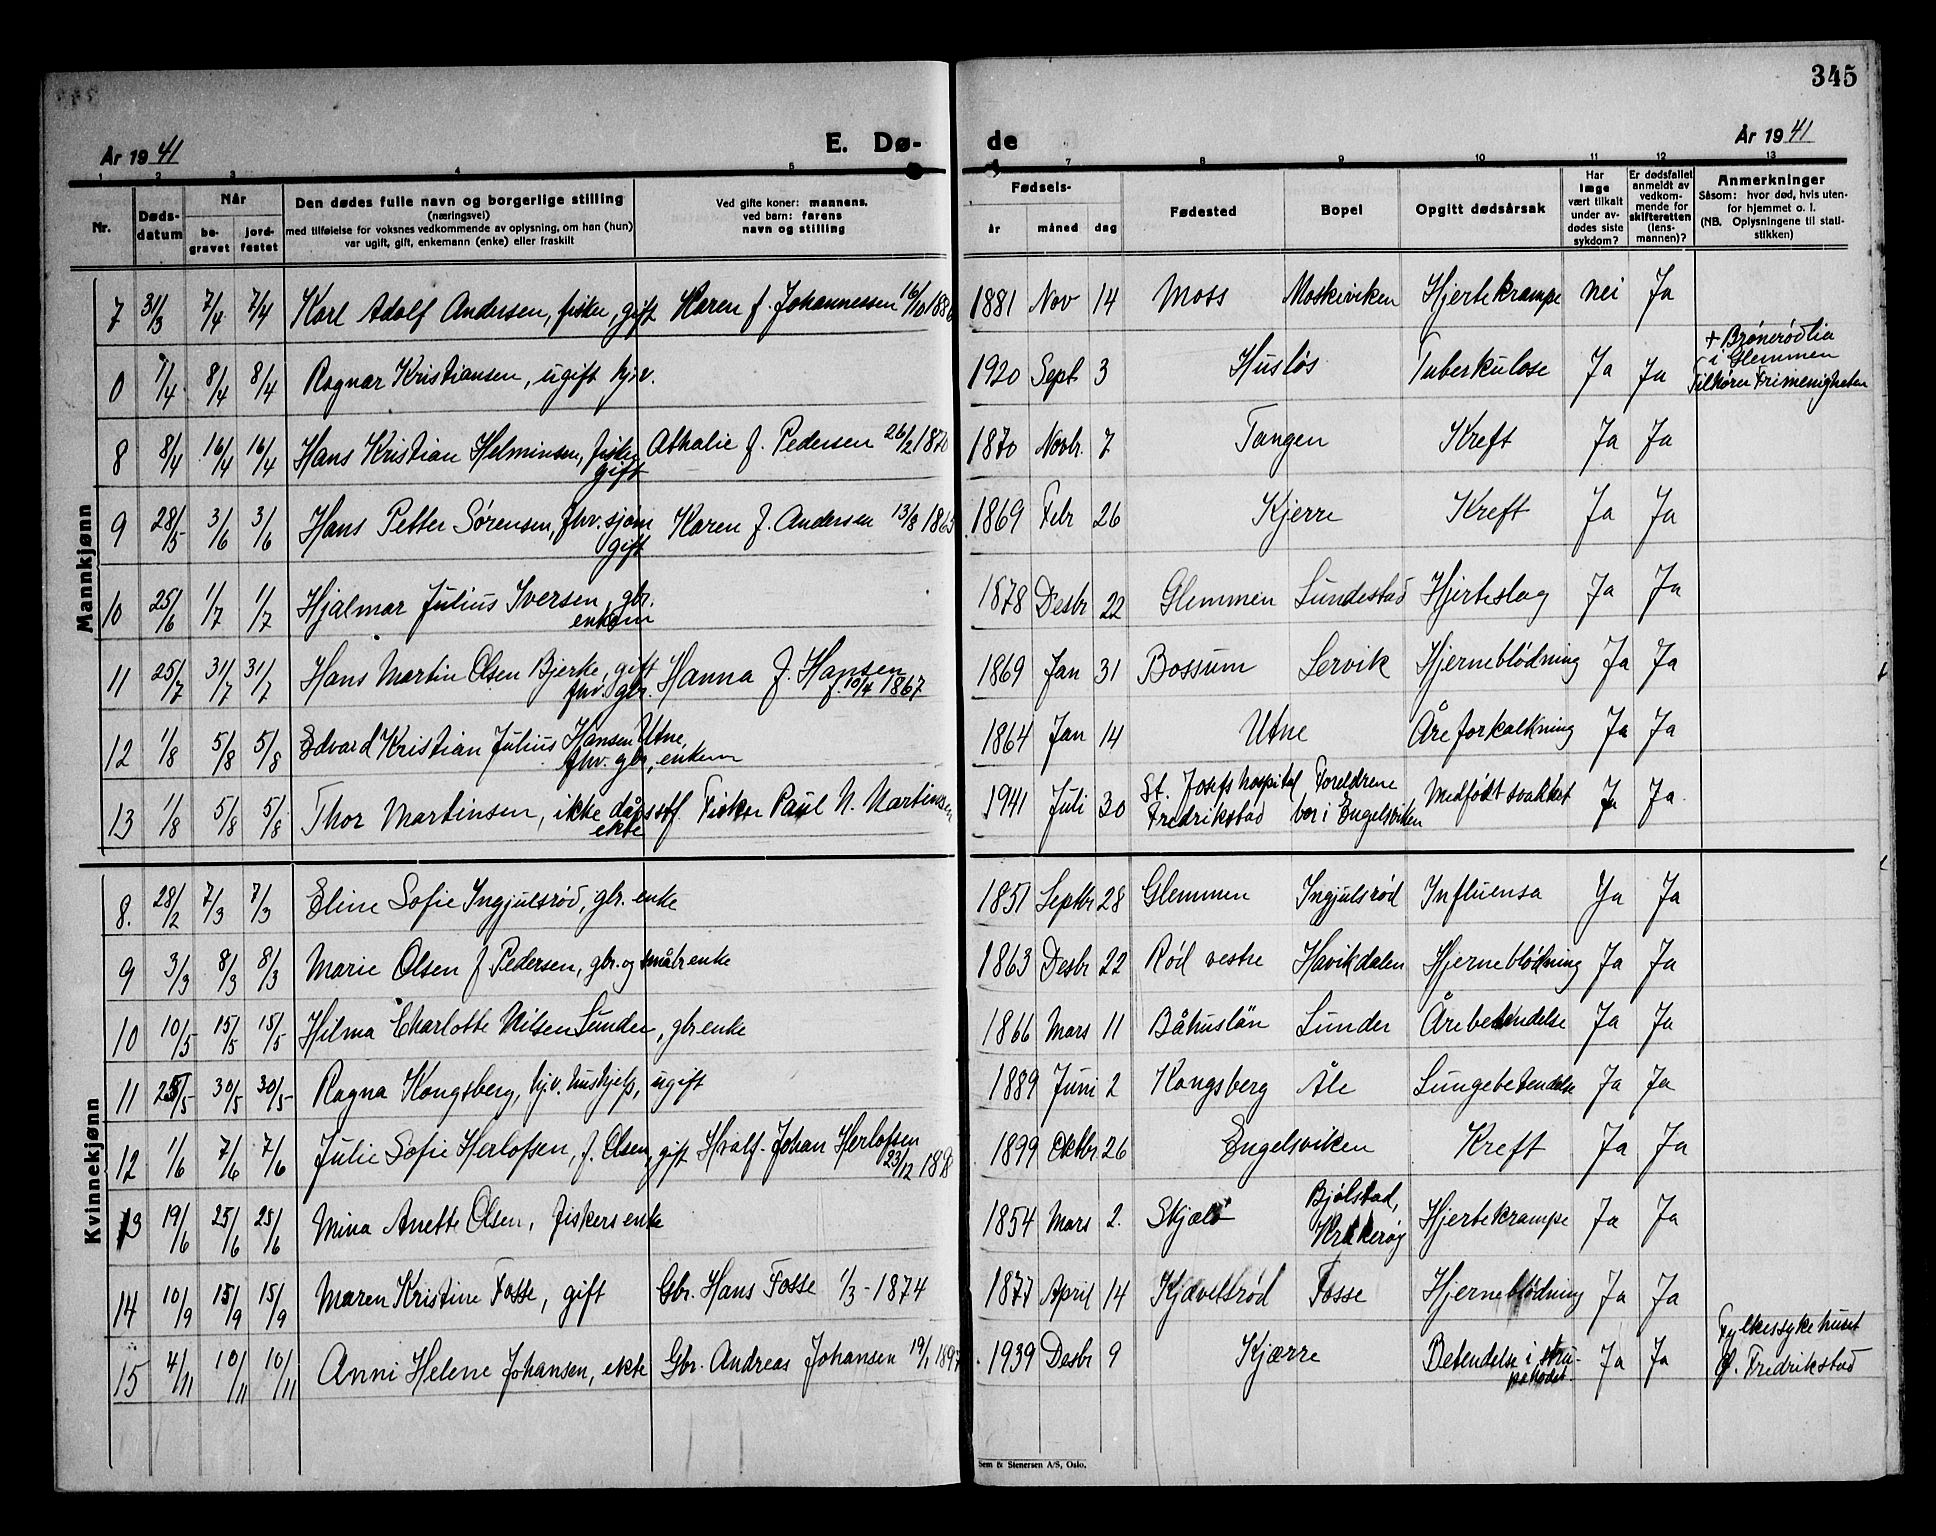 345
År 1941
E. Dø-
de
År 1941
1 2 3 4 5 6 7 8 9 10 11 12 13
Nr.
Døds-
datum
Når
be-
gravet
jord-
festet
Den dødes fulle navn og borgerlige stilling
(næringsvei)
med tilføielse for voksnes vedkommende av oplysning, om han (hun)
var ugift, gift, enkemann (enke) eller fraskilt
Ved gifte koner: mannens,
ved barn: farens
navn og stilling
Fødsels-
år måned dag
Fødested
Bopel
Opgitt dødsårsak
Har
læge
vært tilkalt
under av-
dødes siste
sykdom?
Er dødsfallet
anmeldt av
vedkom-
mende for
skifteretten
(lens-
mannen)?
Anmerkninger
Såsom: hvor død, hvis uten-
for hjemmet o. l.
(NB. Oplysningene til stati-
stikken)
Mannkjønn
7 31/3 7/4 7/4 Karl Adolf Andersen, fisker, gift Karen f. Johannessen 16/10 1886 1881 Nov 14 Moss Moskeviken Hjertekrampe Nei Ja
0 1/4 8/4 8/4 Ragnar Kristiansen, ugift hj.v. 1920 Sept 3 Husløs Tuberkulose Ja Ja + Brønerødlia
i Glemmen
Tilhører Frimenigheten
8 8/4 16/4 16/4 Hans Kristian Helminsen, fisker Athalie f. Pedersen 26/2 1870 1870 Novbr. 7 Tangen Kreft Ja Ja
gift
9 28/5 3/6 3/6 Hans Petter Sørensen, fhv. sjøm Karen f. Andersen 13/8 1865 1869 Febr 26 Kjerre Kreft Ja Ja
gift
10 25/6 1/7 1/7 Hjalmar Julius Iversen, gbr. 1878 Desbr 22 Glemmen Lundestad Hjerteslag Ja Ja
enkem
11 25/7 31/7 31/7 Hans Martin Olsen Bjerke, gift Hanna f. Hansen 1869 Jan 31 Bossum Lervik Hjerneblødning Ja Ja
fhv. gbr. 10/4 1867
12 1/8 5/8 5/8 Edvard Kristian Julius Hansen Utne, 1864 Jan 14 Utne Åreforkalkning Ja Ja
fhv. gbr, enkem
13 1/8 5/8 5/8 Thor Martinsen, ikke dåps Fisker Paul N. Martinsen 1941 Juli 30 St. Josefs hospital Fredrikstad Foreldrene bor i Engelsviken Medfødt svakhet Ja Ja
ekte
Kvinnekjønn
8. 28/2 7/3 7/3 Eline Sofie Ingjulsrød, gbr. enke 1851 Septbr 28 Glemmen Ingjulsrød Influensa Ja Ja
9 3/3 8/3 8/3 Marie Olsen f Pedersen, gbr. og småbr enke 1863 Desbr 22 Rød vestre Havikdalen Hjerneblødning Ja Ja
10 10/5 15/5 15/5 Hilma Charlotte Nilsen Lunder, gbr enke 1866 Mars 11 Båhuslän Lunder Årebetendelse Ja Ja
11 25/5 30/5 30/5 Ragna Kongsberg, hj.v. hushjelp, ugift 1889 Juni 2 Kongsberg Åle Lungebetendelse Ja Ja
12 1/6 7/6 7/6 Julie Sofie Herlofsen, f. Olsen, gift Hvalf. Johan Herlofsen 1899 Oktbr 26 Engelsviken Kreft Ja Ja
23/12 188
13 19/6 25/6 25/6 Mina Anette Olsen, fiskers enke 1854 Mars 2. Skjælø Bjølstad, Kråkerøy Hjertekrampe Ja Ja
14 10/9 15/9 15/9 Maren Kristine Fosse, gift Gbr. Hans Fosse 1/3 - 1874 1877 April 14 Kjøvelsrød Fosse Hjerneblødning Ja Ja
15 4/11 10/11 10/11 Anni Helene Johansen, ekte Gbr. Andreas Johansen 19/1 1897 1939 Desbr 9 Kjærre Betendelse i stru-
pehodet. Ja Ja Fylkessykehuset
Ø. Fredrikstad
Sem & Stenersen A/S, Oslo.